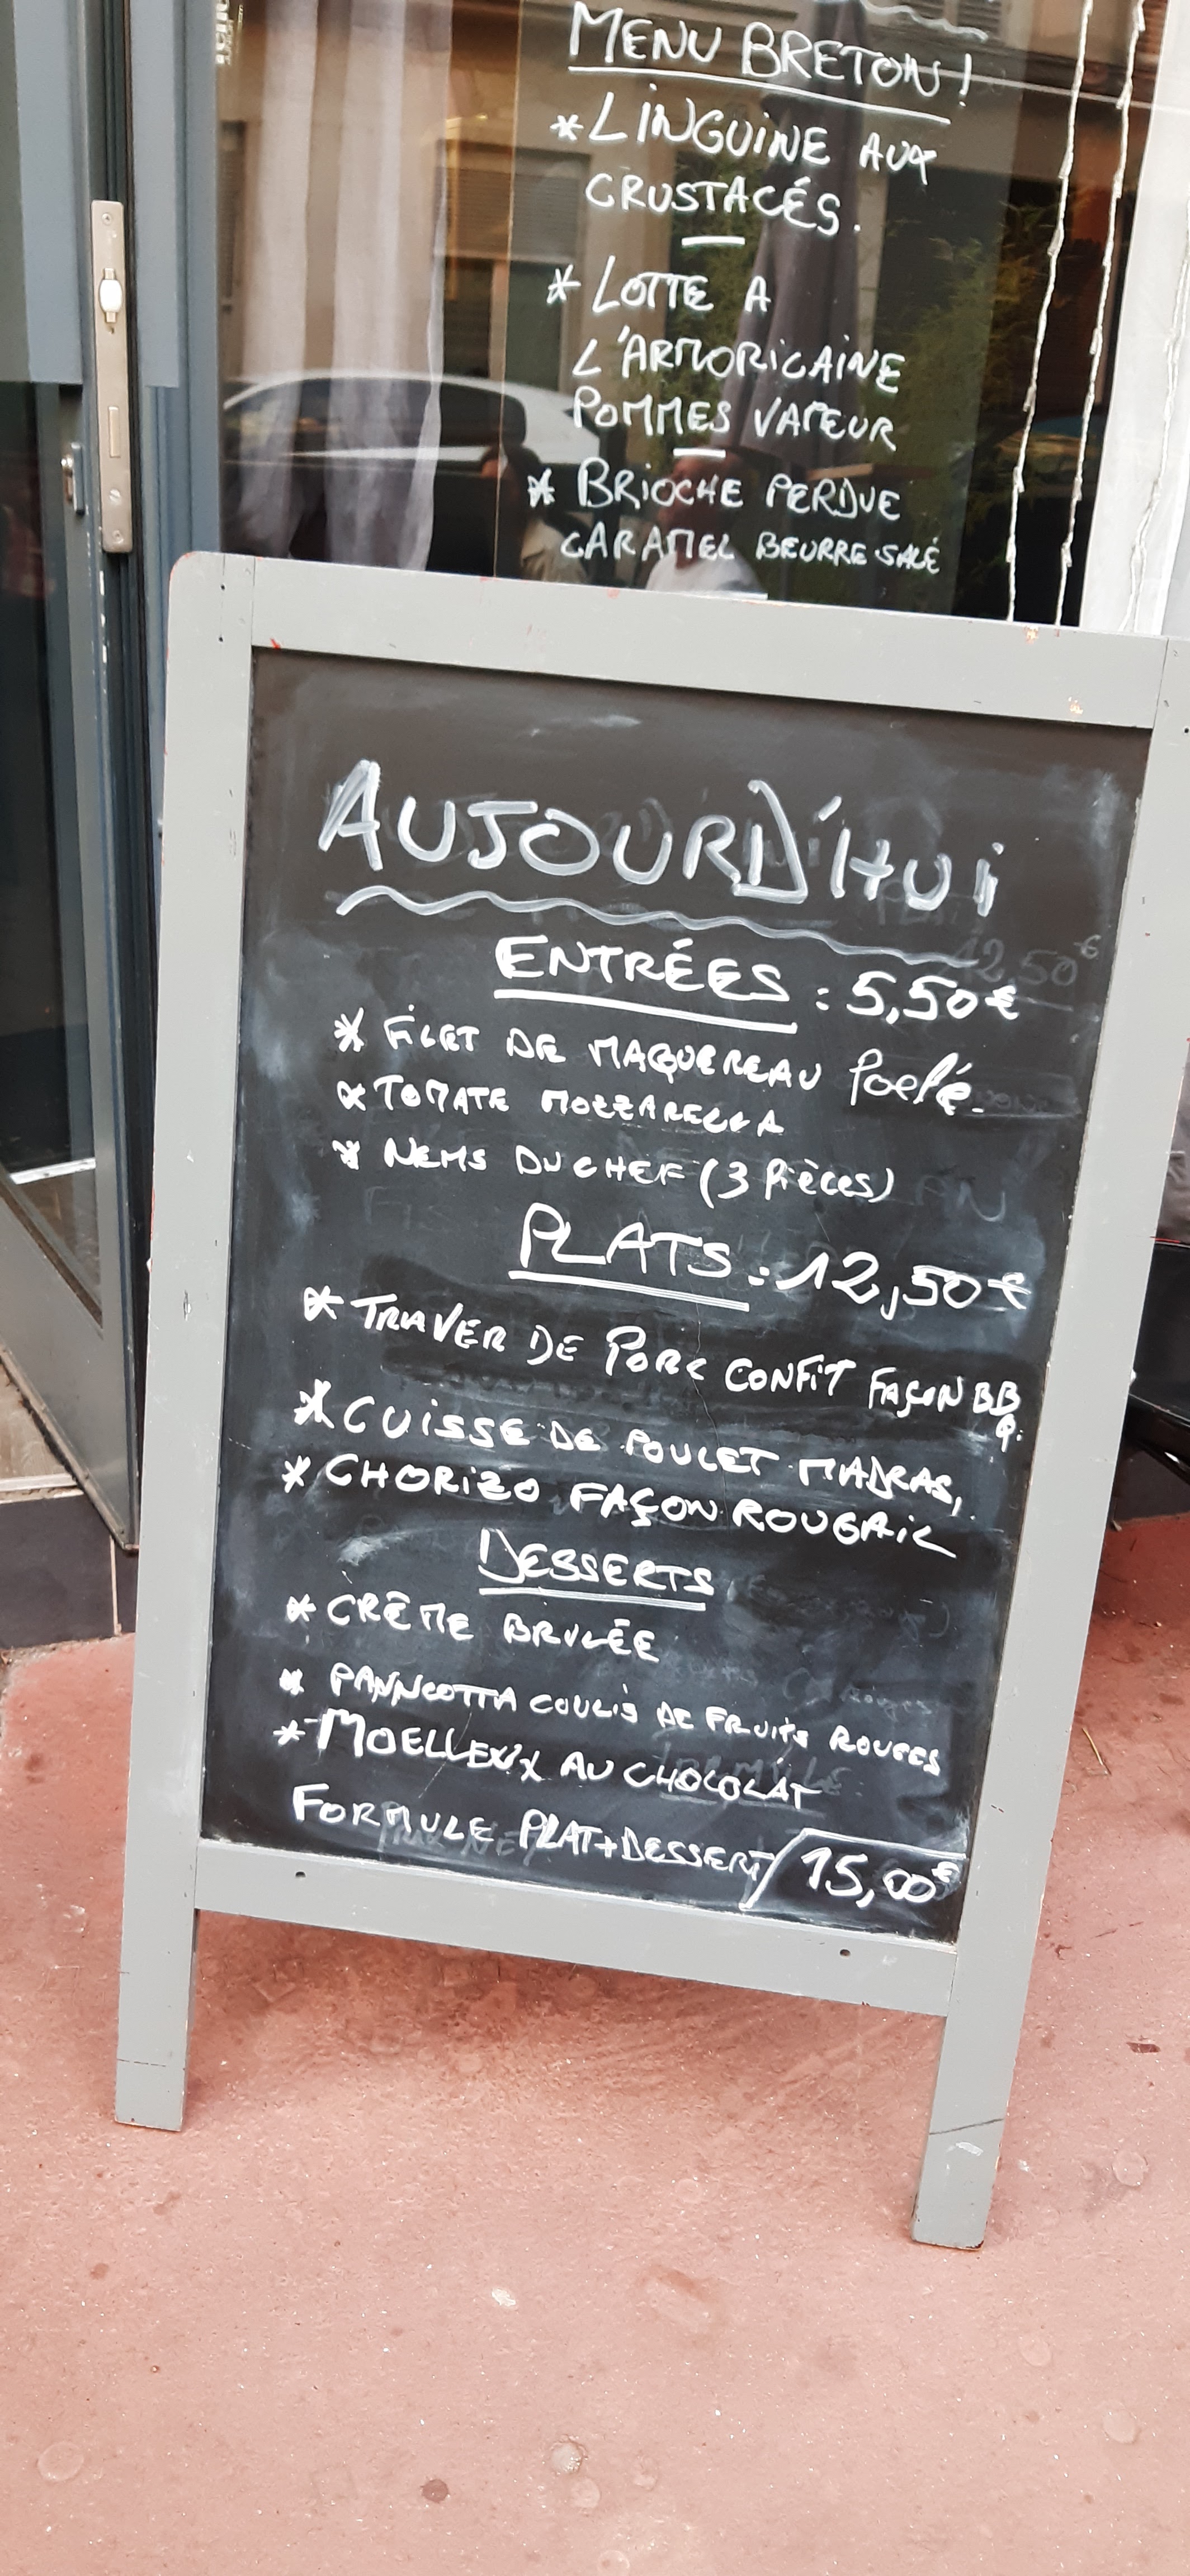 MENU BRETON!
* LINGUINE AUX
CRUSTACÉS.
* LOTTE A
L'ARMORICAINE
POMMES VAPEUR
* BRIOCHE PERDUE
CARAMEL BEURRE SALÉ
AUJOURD'HUI
ENTRÉES : 5,50€
* FILET DE MAQUEREAU Poelé.
* TOMATE MOZZARELLA
* NEMS DU CHEF (3 Pièces)
PLATS : 12,50€
* TRAVER DE PORC CONFIT FAÇON BB
Q.
* CUISSE DE POULET MADRAS,
* CHORIZO FAÇON ROUGAIL
DESSERTS
* CRÊME BRULÉE
* PANNCOTTA COULIS DE FRUITS ROUGES
* MOELLEUX AU CHOCOLAT
FORMULE PLAT+DESSERT/15,00€